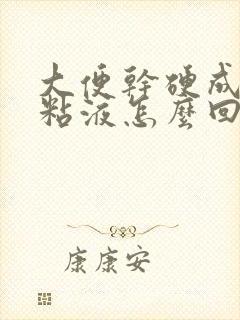 大便幹硬成
粘液怎麼回
康康安